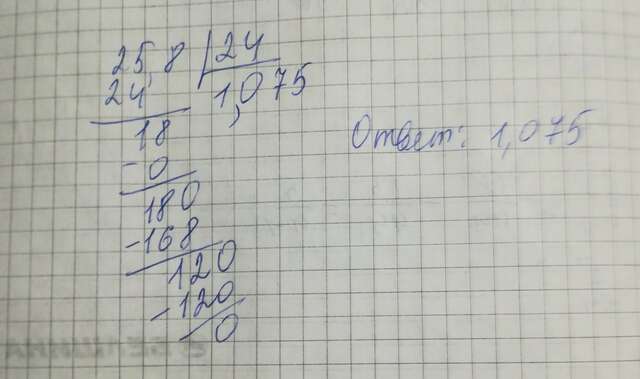 25,8 | 24
24 1,075
18
-0
180
-168
120
-120
0
Ответ: 1,075